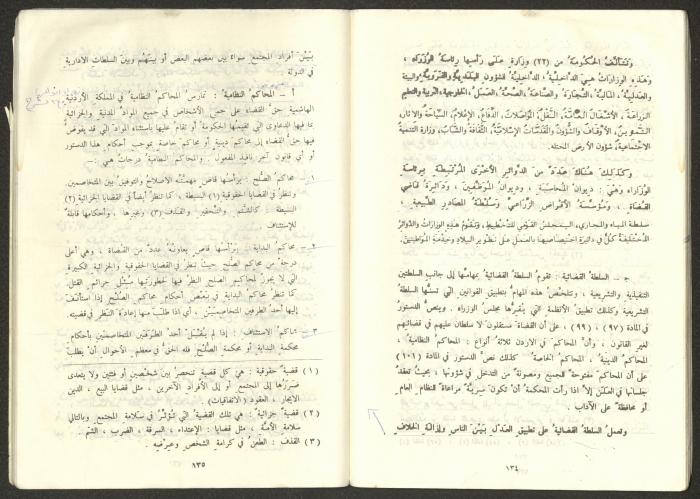 وتتألف الحكومة من (٢٢) وزارة على رأسها رئاسة الوزراء ،
وهذه الوزارات هي الداخلية ، الداخلية للشؤون البلدية والقروية والبيئة
والعدلية ، المالية ، التجارة والصناعة ، الصحة ، العمل ، الخارجية ، التربية والتعليم
الزراعة ، الأشغال العامة ، النقل ، المواصلات ، الدفاع ، الإعلام ، السياحة والآثار ،
التموين ، الأوقاف والشؤون والمقدسات الإسلامية ، الثقافة والشباب ، وزارة التنمية
الاجتماعية ، شؤون الأرض المحتلة .
وكذلك هناك عدد من الدوائر الأخرى المرتبطة برئاسة
الوزراء وهي : ديوان المحاسبة ، وديوان الموظفين ، ودائرة قاضي
القضاة ، ومؤسسة الأقراض الزراعي وسلطة المصادر الطبيعية ،
سلطة المياه والمجاري ، المجلس القومي للتخطيط ، وتقوم هذه الوزارات والدوائر
المختلفة كل في دائرة اختصاصها بالعمل على تطوير البلاد وخدمة المواطنين .
جـ - السلطة القضائية : تقوم السلطة القضائية بمهامها إلى جانب السلطتين
التنفيذية والتشريعية ، وتتلخص هذه المهام بتطبيق القوانين التي تسنها السلطة
التشريعية وكذلك تطبيق الأنظمة التي يقرها مجلس الوزراء . وينص الدستور
في المادة (٩٧) ، (٩٩) ، على أن القضاة مستقلون لا سلطان عليهم في قضائهم
لغير القانون ، وأن المحاكم في الاردن ثلاثة أنواع : المحاكم النظامية ،
المحاكم الدينية ، المحاكم الخاصة كذلك نص الدستور في المادة (١٠١)
على أن المحاكم مفتوحة للجميع ومصونة من التدخل في شؤونها ، بحيث تنعقد
جلساتها في العلن إلا اذا رأت المحكمة أن تكون سرية مراعاة للنظام العام
أو محافظة على الآداب .
وتعمل السلطة القضائية على تطبيق العدل بين الناس وإزالة الخلاف
١٣٤
بين أفراد المجتمع سواء بين بعضهم البعض أو بينهم وبين السلطات الأدارية
في الدولة .
أ - المحاكم النظامية : تمارس المحاكم النظامية في المملكة الأردنية
الهاشمية حق القضاء على جميع الأشخاص في جميع المواد المدنية والجزائية
بما فيها الدعاوى التي تقيمها الحكومة أو تقام عليها باستثناء المواد التي قد يفوض
فيها حق القضاء إلى محاكم دينية أو محاكم خاصة بموجب أحكام هذا الدستور
أو أي قانون آخر نافذ المفعول . والمحاكم النظامية درجات هي :-
١ - محاكم الصلح : يرأسها قاض مهمته الاصلاح والتوفيق بين المتخاصمين.
وتنظر في القضايا الحقوقية (١) البسيطة ، كما تنظر أيضا في القضايا الجزائية (٢)
البسيطة : كالشتم والتحقير والقذف (٣) وغيرها ، وأحكامها قابلة
للإستئناف
٢ - محاكم البداية : يرأسها قاض يعاونه عدد من القضاة ، وهي أعلى
درجة من محاكم الصلح حيث تنظر في القضايا الحقوقية والجزائية الكبيرة
التي لا يجوز لمحاكم الصلح النظر فيها لخطورتها مثل جرائم القتل .
كما تنظر محاكم البداية في بعض أحكام محاكم الصلح إذا استأنف
إليها أحد الطرفين المتخاصمين ، أي اذا طلب منها إعادة النظر في قضيته.
٣ - محاكم الاستئناف : إذا لم يقبل أحد الطرفين المتخاصمين بأحكام
محكمة البداية أو محكمة الصلح فله الحق في معظم الأحوال أن يطلب
(١) قضية حقوقية : هي كل قضية تنحصر بين شخصين أو فئتين ولا يتعدى
ضررها إلى المجتمع أو إلى الأفراد الآخرين ، مثل قضايا البيع ، الدين
الايجار ، العقود (الاتفاقيات)
(٢) قضية جزائية : هي تلك القضية التي تؤثر في سلامة المجتمع وبالتالي
سلامة الأمة ، مثل قضايا : الإعتداء ، السرقة ، الضرب ، الشتم .
(٣) القذف : الطعن في كرامة الشخص وعرضه .
١٣٥